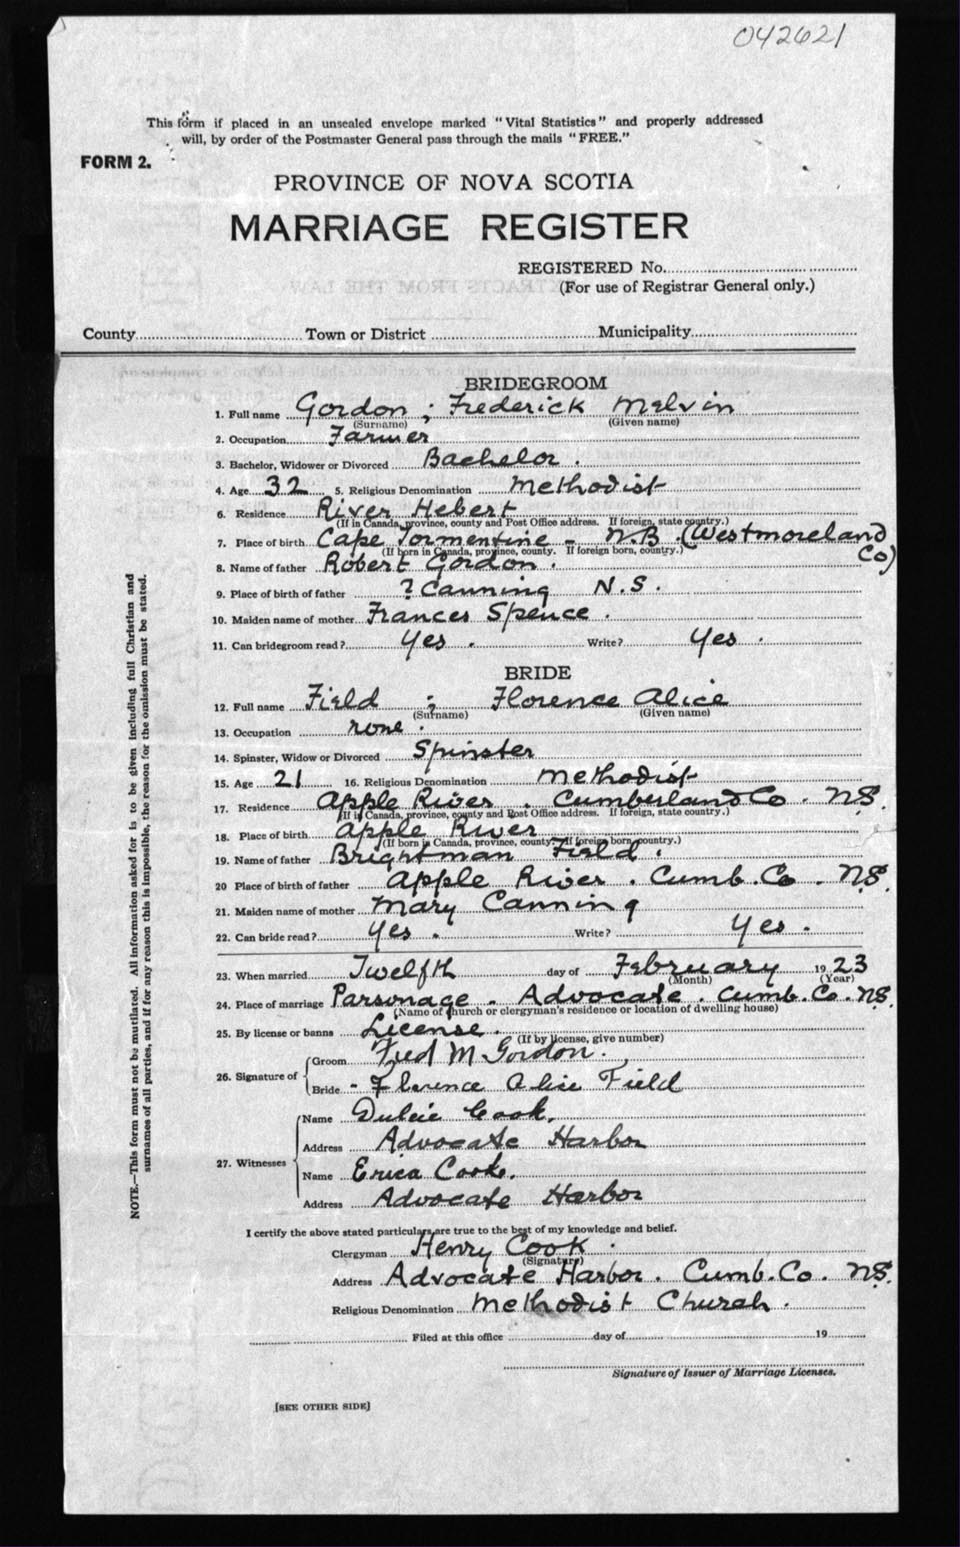 042621
This form if placed in an unsealed envelope marked "Vital Statistics" and properly addressed
will, by order of the Postmaster General pass through the mails "FREE."
FORM 2.
PROVINCE OF NOVA SCOTIA
MARRIAGE REGISTER
REGISTERED No.
(For use of Registrar General only.)
County Town or District Municipality
BRIDEGROOM
1. Full name Gordon ; Frederick Melvin
(Surname) (Given name)
2. Occupation Farmer
3. Bachelor, Widower or Divorced Bachelor .
4. Age 32 5. Religious Denomination Methodist
6. Residence River Hebert
(If in Canada, province, county and Post Office address. If foreign, state country.)
7. Place of birth Cape Tormentine - N.B. (Westmoreland Co)
(If born in Canada, province, county. If foreign born, country.)
8. Name of father Robert Gordon .
9. Place of birth of father ? Canning N.S.
10. Maiden name of mother Frances Spence .
11. Can bridegroom read? Yes . Write? Yes .
BRIDE
12. Full name Field ; Florence Alice
(Surname) (Given name)
13. Occupation none .
14. Spinster, Widow or Divorced Spinster
15. Age 21 16. Religious Denomination Methodist
17. Residence Apple River . Cumberland Co . N.S.
(If in Canada, province, county and Post Office address. If foreign, state country.)
18. Place of birth Apple River
(If born in Canada, province, county. If foreign born, country.)
19. Name of father Brightman Field .
20 Place of birth of father Apple River . Cumb. Co . N.S.
21. Maiden name of mother Mary Canning
22. Can bride read? Yes . Write? Yes .
23. When married Twelfth day of February 1923
(Month) (Year)
24. Place of marriage Parsonage . Advocate . Cumb. Co . N.S.
(Name of church or clergyman's residence or location of dwelling house)
25. By license or banns License .
(If by license, give number)
26. Signature of
Groom Fred M Gordon.
Bride - Florence Alice Field
27. Witnesses
Name Dulcie Cook.
Address Advocate Harbor
Name Erica Cook.
Address Advocate Harbor
I certify the above stated particulars are true to the best of my knowledge and belief.
Clergyman Henry Cook .
(Signature)
Address Advocate Harbor . Cumb. Co. N.S.
Religious Denomination Methodist Church .
Filed at this office day of 19
Signature of Issuer of Marriage Licenses.
[SEE OTHER SIDE]
NOTE.—This form must not be mutilated. All information asked for is to be given including full Christian and
surnames of all parties, and if for any reason this is impossible, the reason for the omission must be stated.